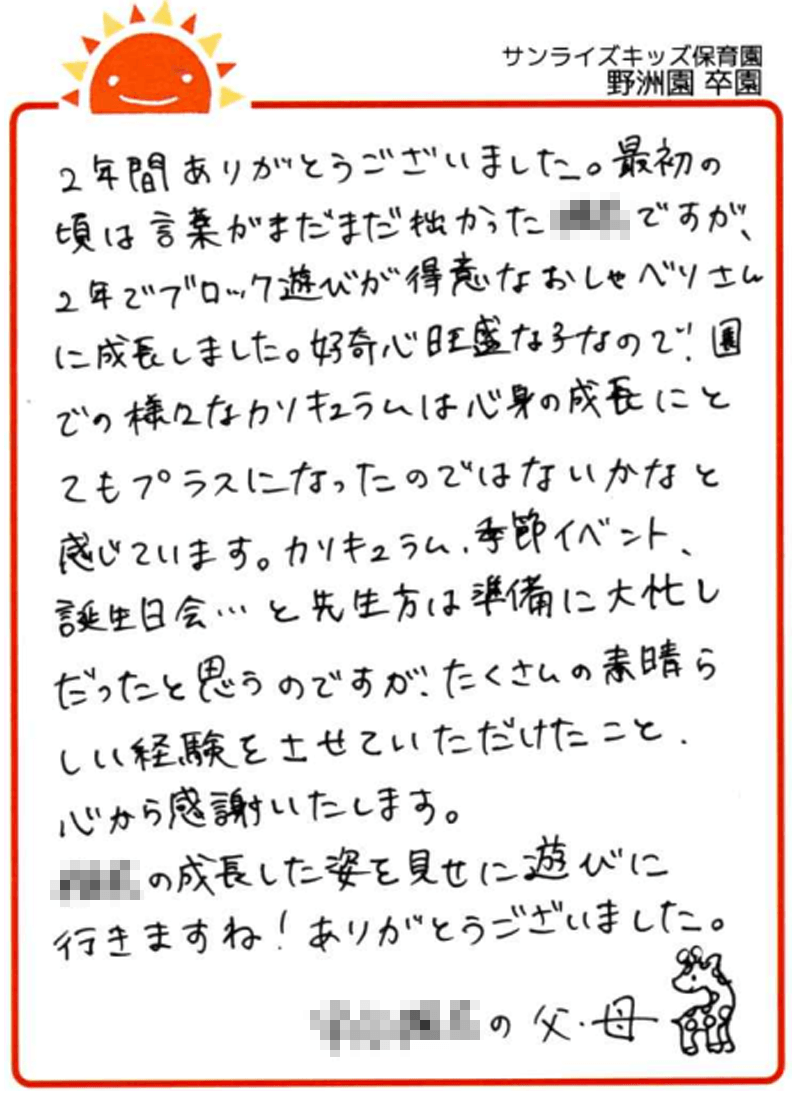 サンライズキッズ保育園
野洲園 卒園
2年間ありがとうございました。最初の
頃は言葉がまだまだ拙かったですが、
2年でブロック遊びが得意なおしゃべりさん
に成長しました。好奇心旺盛な子なので、園
での様々なカリキュラムは心身の成長にと
てもプラスになったのではないかなと
感じています。カリキュラム、季節イベント、
誕生日会…と先生方は準備に大忙し
だったと思うのですが、たくさんの素晴ら
しい経験をさせていただけたこと、
心から感謝いたします。
の成長した姿を見せに遊びに
行きますね!ありがとうございました。
の父・母